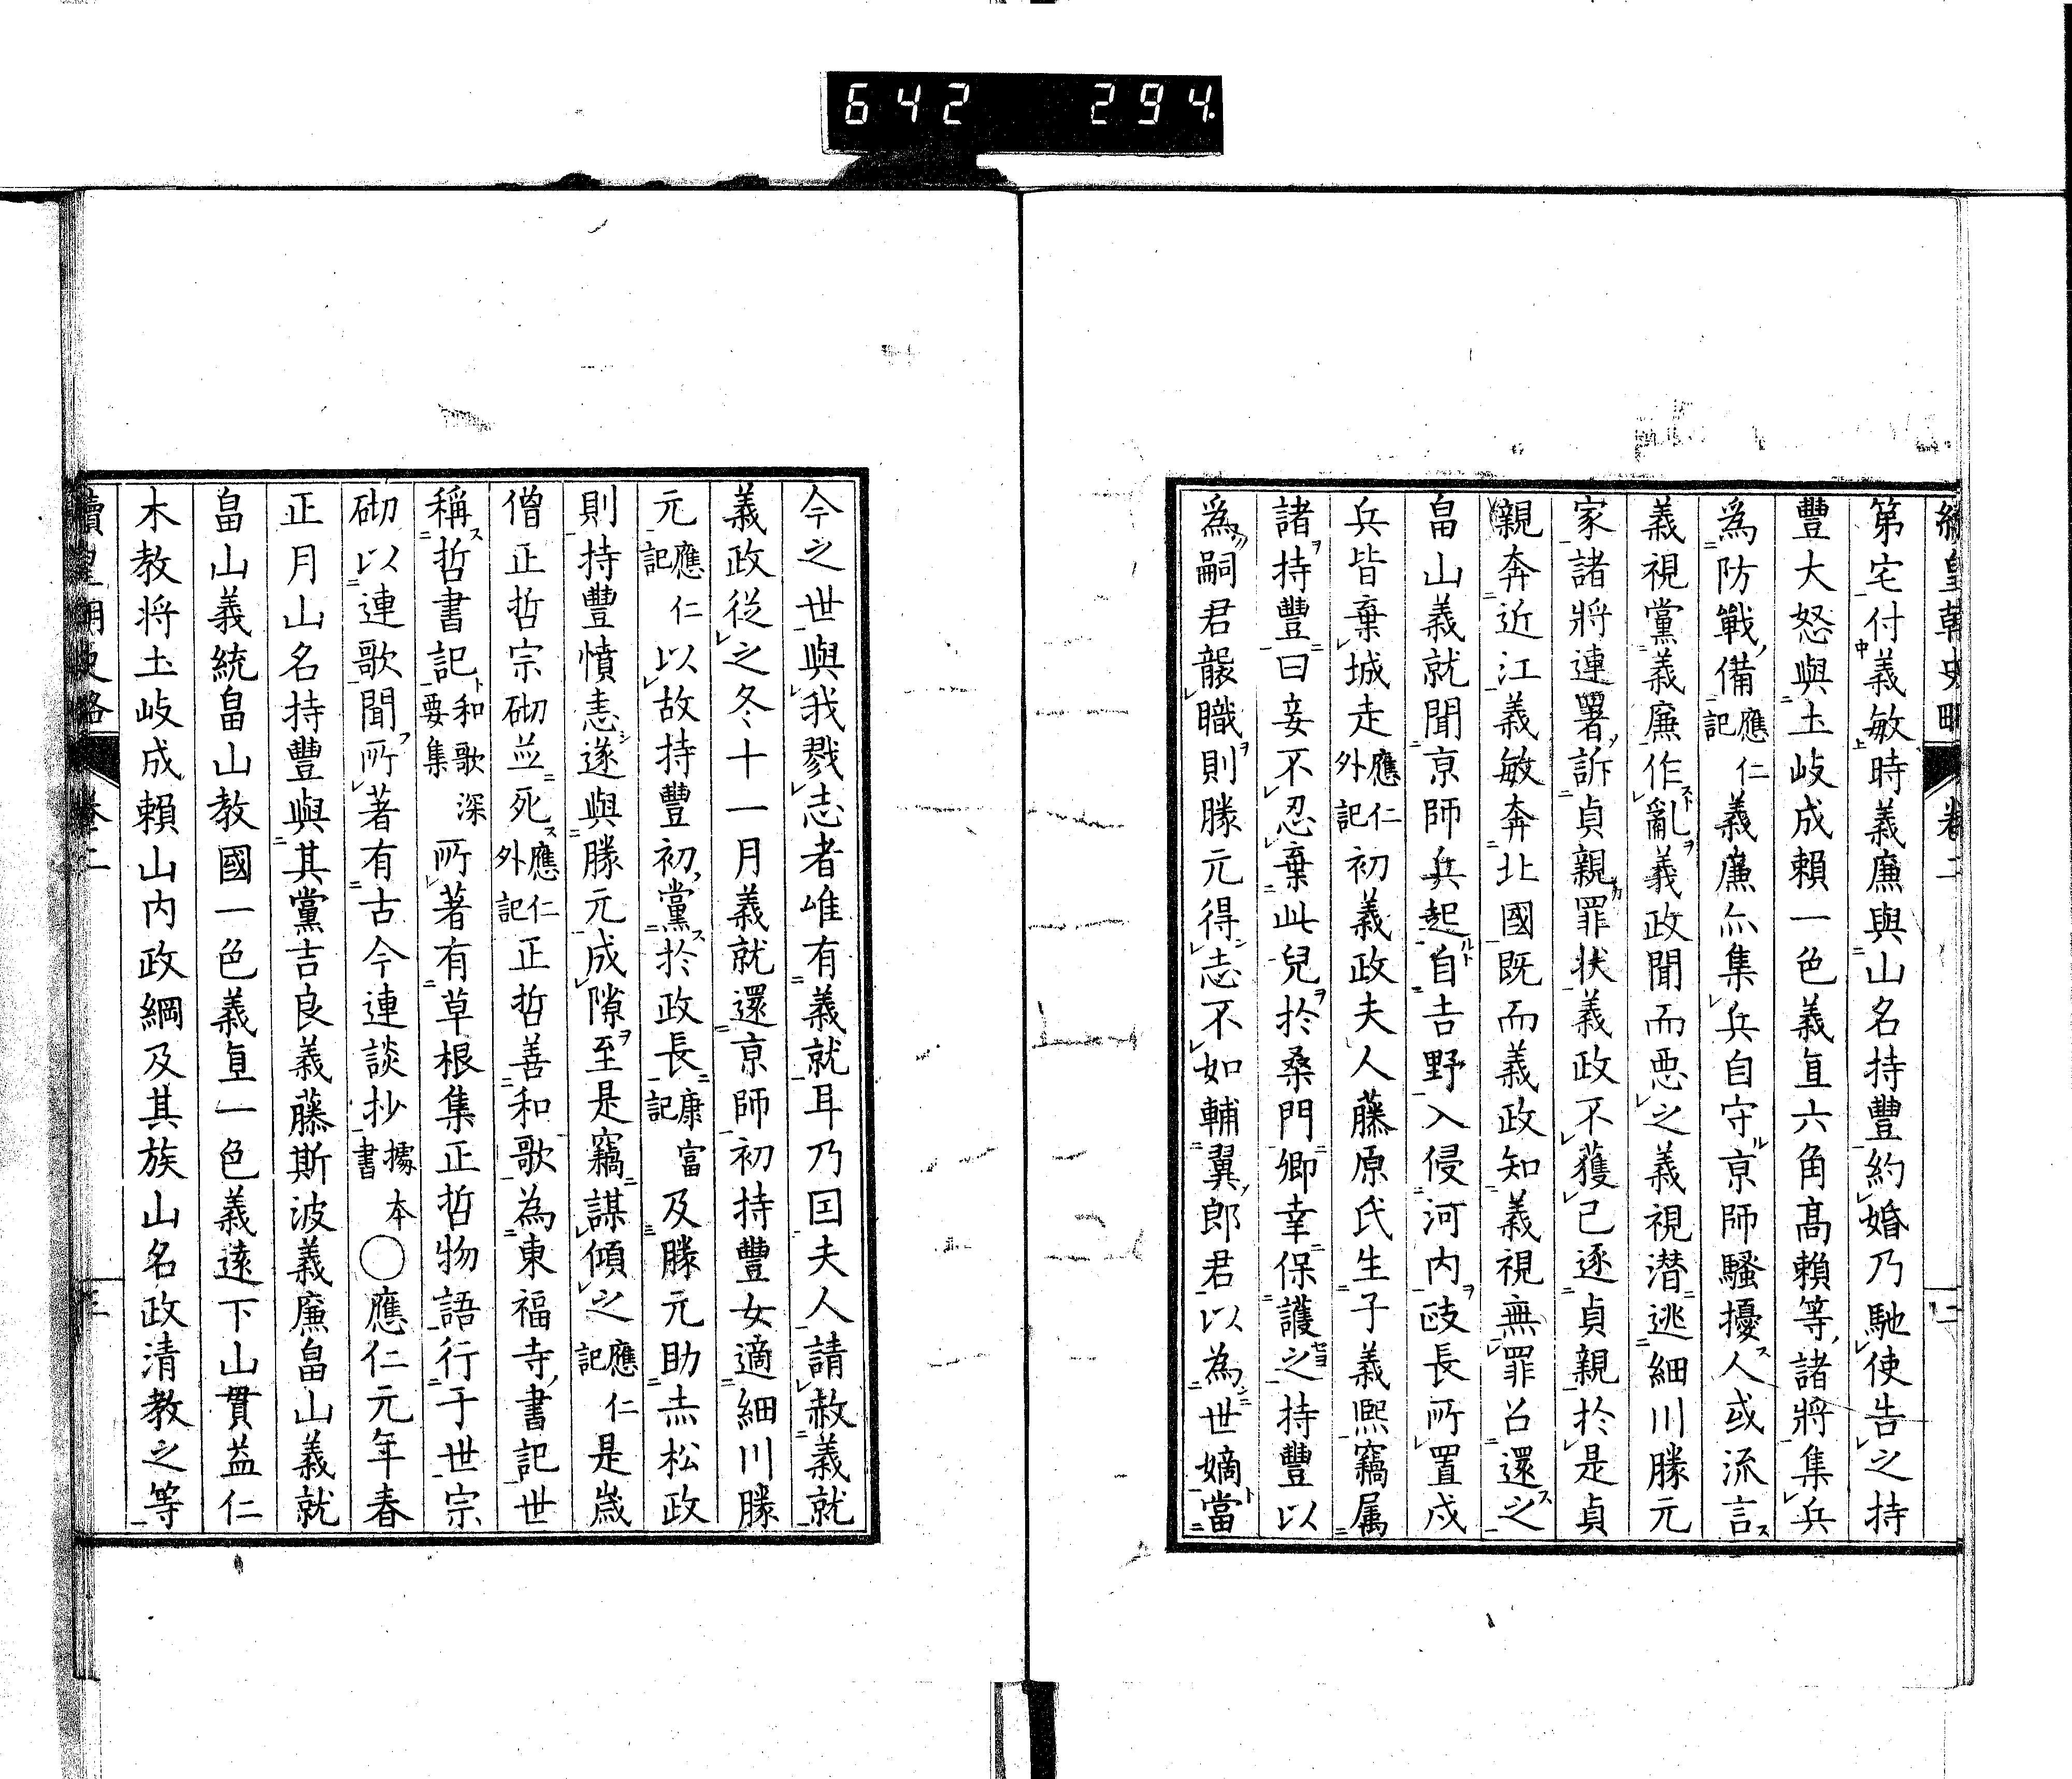 642 294
續皇朝史略 卷二 二
第宅付義敏時義廉與山名持豐約婚乃馳使告之持
豐大怒與土岐成賴一色義直六角高賴等諸將集兵
爲防戰備應仁記義廉亦集兵自守京師騷擾人或流言
義視黨義廉作亂義政聞而惡之義視潛逃細川勝元
家諸將連署訴貞親罪狀義政不獲已逐貞親於是貞
親奔近江義敏奔北國既而義政知義視無罪召還之
畠山義就聞京師兵起自吉野入侵河内政長所置戍
兵皆棄城走應仁外記初義政夫人藤原氏生子義熙竊属
諸持豐曰妾不忍棄此兒於桑門卿幸保護之持豐以
爲嗣君襲職則勝元得志不如輔翼郎君以為世嫡當
今之世與我戮志者唯有義就耳乃因夫人請赦義就
義政從之冬十一月義就還京師初持豐女適細川勝
元應仁記以故持豐初黨於政長康富記及勝元助赤松政
則持豐憤恚遂與勝元成隙至是竊謀傾之應仁記是歲
僧正哲宗砌並死應仁外記正哲善和歌為東福寺書記世
稱哲書記和歌深要集所著有草根集正哲物語行于世宗
砌以連歌聞所著有古今連談抄據本書〇應仁元年春
正月山名持豐與其黨吉良義藤斯波義廉畠山義就
畠山義統畠山教國一色義直一色義遠下山貫益仁
木教将土岐成賴山内政綱及其族山名政清教之等
續皇朝史略 卷二 三